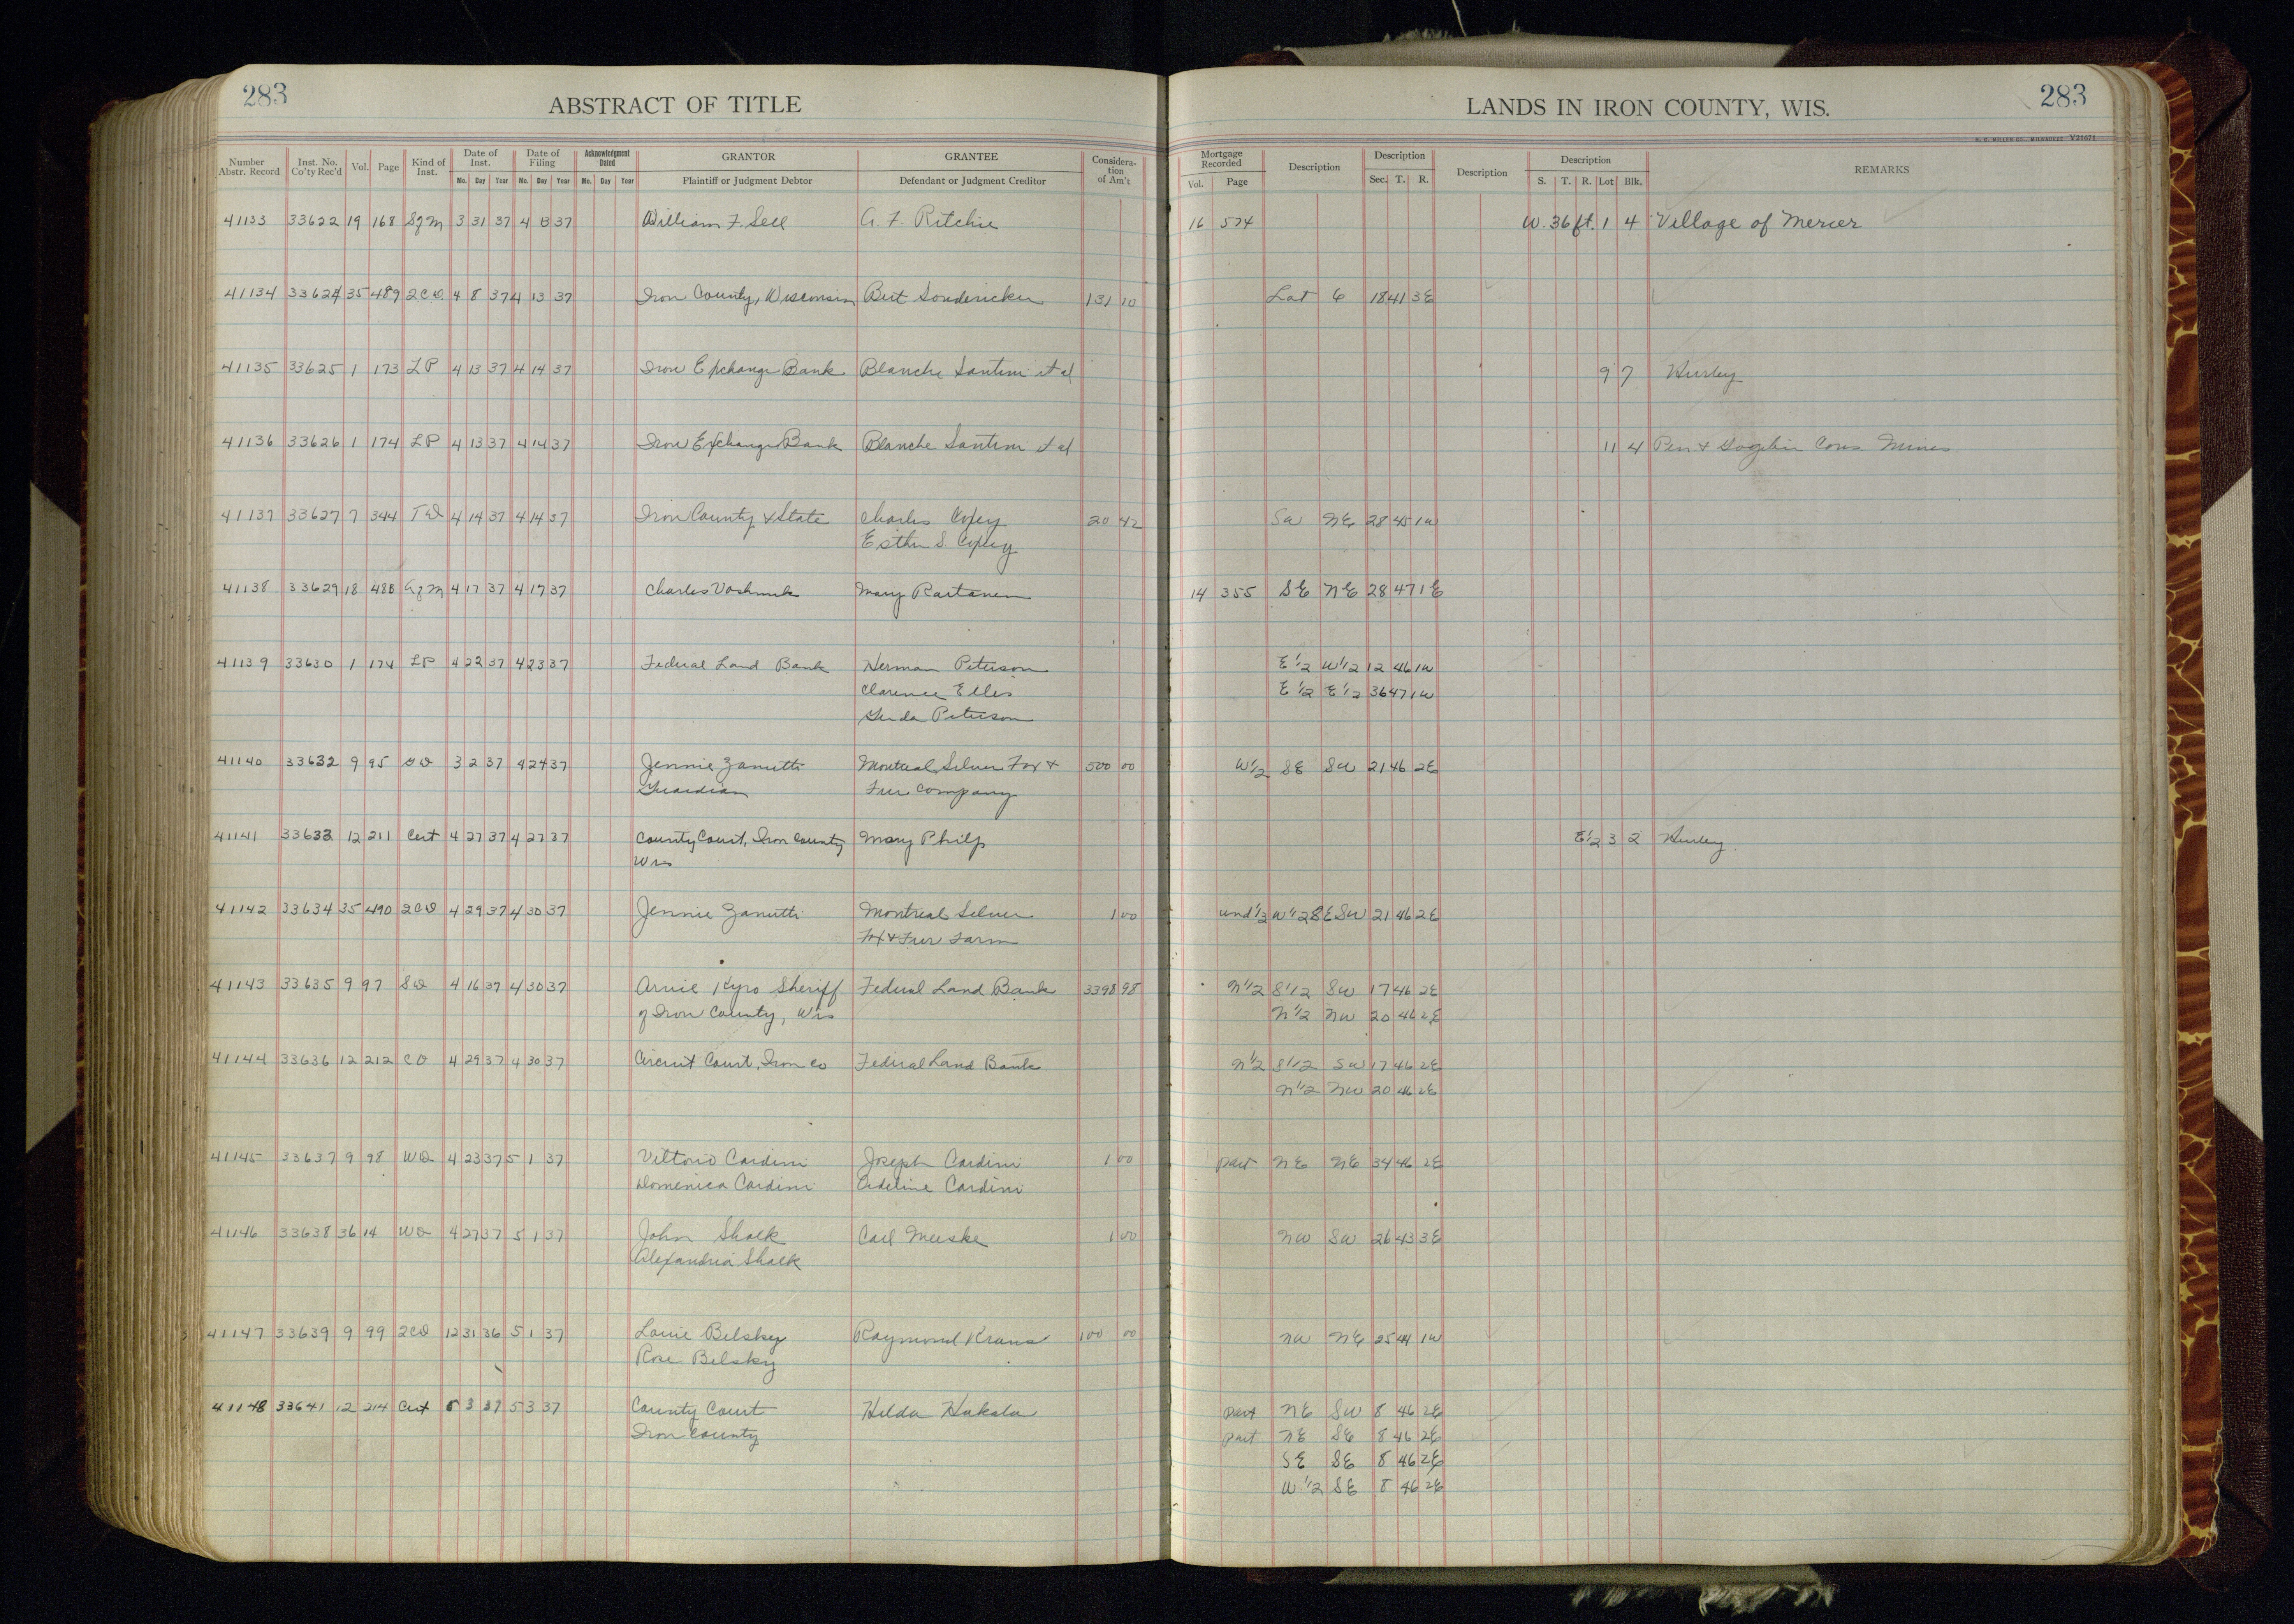 283
ABSTRACT OF TITLE
LANDS IN IRON COUNTY, WIS.
283
Number Abstr. Record Inst. No. Co'ty Rec'd Vol. Page Kind of Inst. Date of Inst. Mo. Day Year Date of Filing Mo. Day Year Acknowledgment Dated Mo. Day Year GRANTOR Plaintiff or Judgment Debtor GRANTEE Defendant or Judgment Creditor Considera-tion of Am't Mortgage Recorded Vol. Page Description Description Sec. T. R. Description Description S. T. R. Lot Blk. REMARKS
41133 33622 19 168 SgM 3 31 37 4 13 37 William F. Sell A. F. Ritchie 16 574 W. 36 ft. 1 4 Village of Mercer
41134 33624 35 489 2CD 4 8 37 4 13 37 Iron County, Wisconsin Bert Sondericker 131 10 Lot 6 18 41 3E
41135 33625 1 173 LP 4 13 37 4 14 37 Iron Exchange Bank Blanche Santini et al 9 7 Hurley
41136 33626 1 174 LP 4 13 37 4 14 37 Iron Exchange Bank Blanche Santini et al 11 4 Pen & Gogebic Cons Mines
41137 33627 7 344 TD 4 14 37 4 14 37 Iron County & State Charles Copey 20 42 SW NE 28 45 1W
Esther S Copey
41138 33629 18 488 AgM 4 17 37 4 17 37 Charles Mary Rartanen 14 355 SE NE 28 47 1E
41139 33630 1 174 LP 4 22 37 4 23 37 Federal Land Bank Herman Peterson E 1/2 W 1/2 12 46 1W
Clarence Elles E 1/2 E 1/2 36 47 1W
Gerda Peterson
41140 33632 9 95 GD 3 2 37 4 24 37 Jennie Zanutti Montreal Silver Fox & 500 00 W 1/2 SE SW 21 46 2E
Guardian Fur Company
41141 33633 12 211 Cert 4 27 37 4 27 37 County Court, Iron County Mary Philp E 1/2 3 2 Hurley.
Wis
41142 33634 35 490 2CD 4 29 37 4 30 37 Jennie Zanutti Montreal Silver 1 00 und 1/2 W 1/2 SE SW 21 46 2E
Fox & Fur Farm
41143 33635 9 97 SD 4 16 37 4 30 37 Arvie Kyro Sheriff Federal Land Bank 3398 98 N 1/2 S 1/2 SW 17 46 2E
of Iron County, Wis N 1/2 NW 20 46 2E
41144 33636 12 212 CO 4 29 37 4 30 37 Circuit Court, Iron Co Federal Land Bank N 1/2 S 1/2 SW 17 46 2E
N 1/2 NW 20 46 2E
41145 33637 9 98 WD 4 23 37 5 1 37 Vittorio Cardini Joseph Cardini 1 00 part NE NE 34 46 2E
Domenica Cardini Adeline Cardini
41146 33638 36 14 WD 4 27 37 5 1 37 John Shalk Carl Meeske 1 00 NW SW 26 43 3E
Alexandria Shalk
41147 33639 9 99 2CD 12 31 36 5 1 37 Louie Belsky Raymond Kraus 100 00 NW NE 25 44 1W
Rose Belsky
41148 33641 12 214 Cert 5 3 37 5 3 37 County Court Hilda Hakala part NE SW 8 46 2E
Iron County part NE SE 8 46 2E
SE SE 8 46 2E
W 1/2 SE 8 46 2E